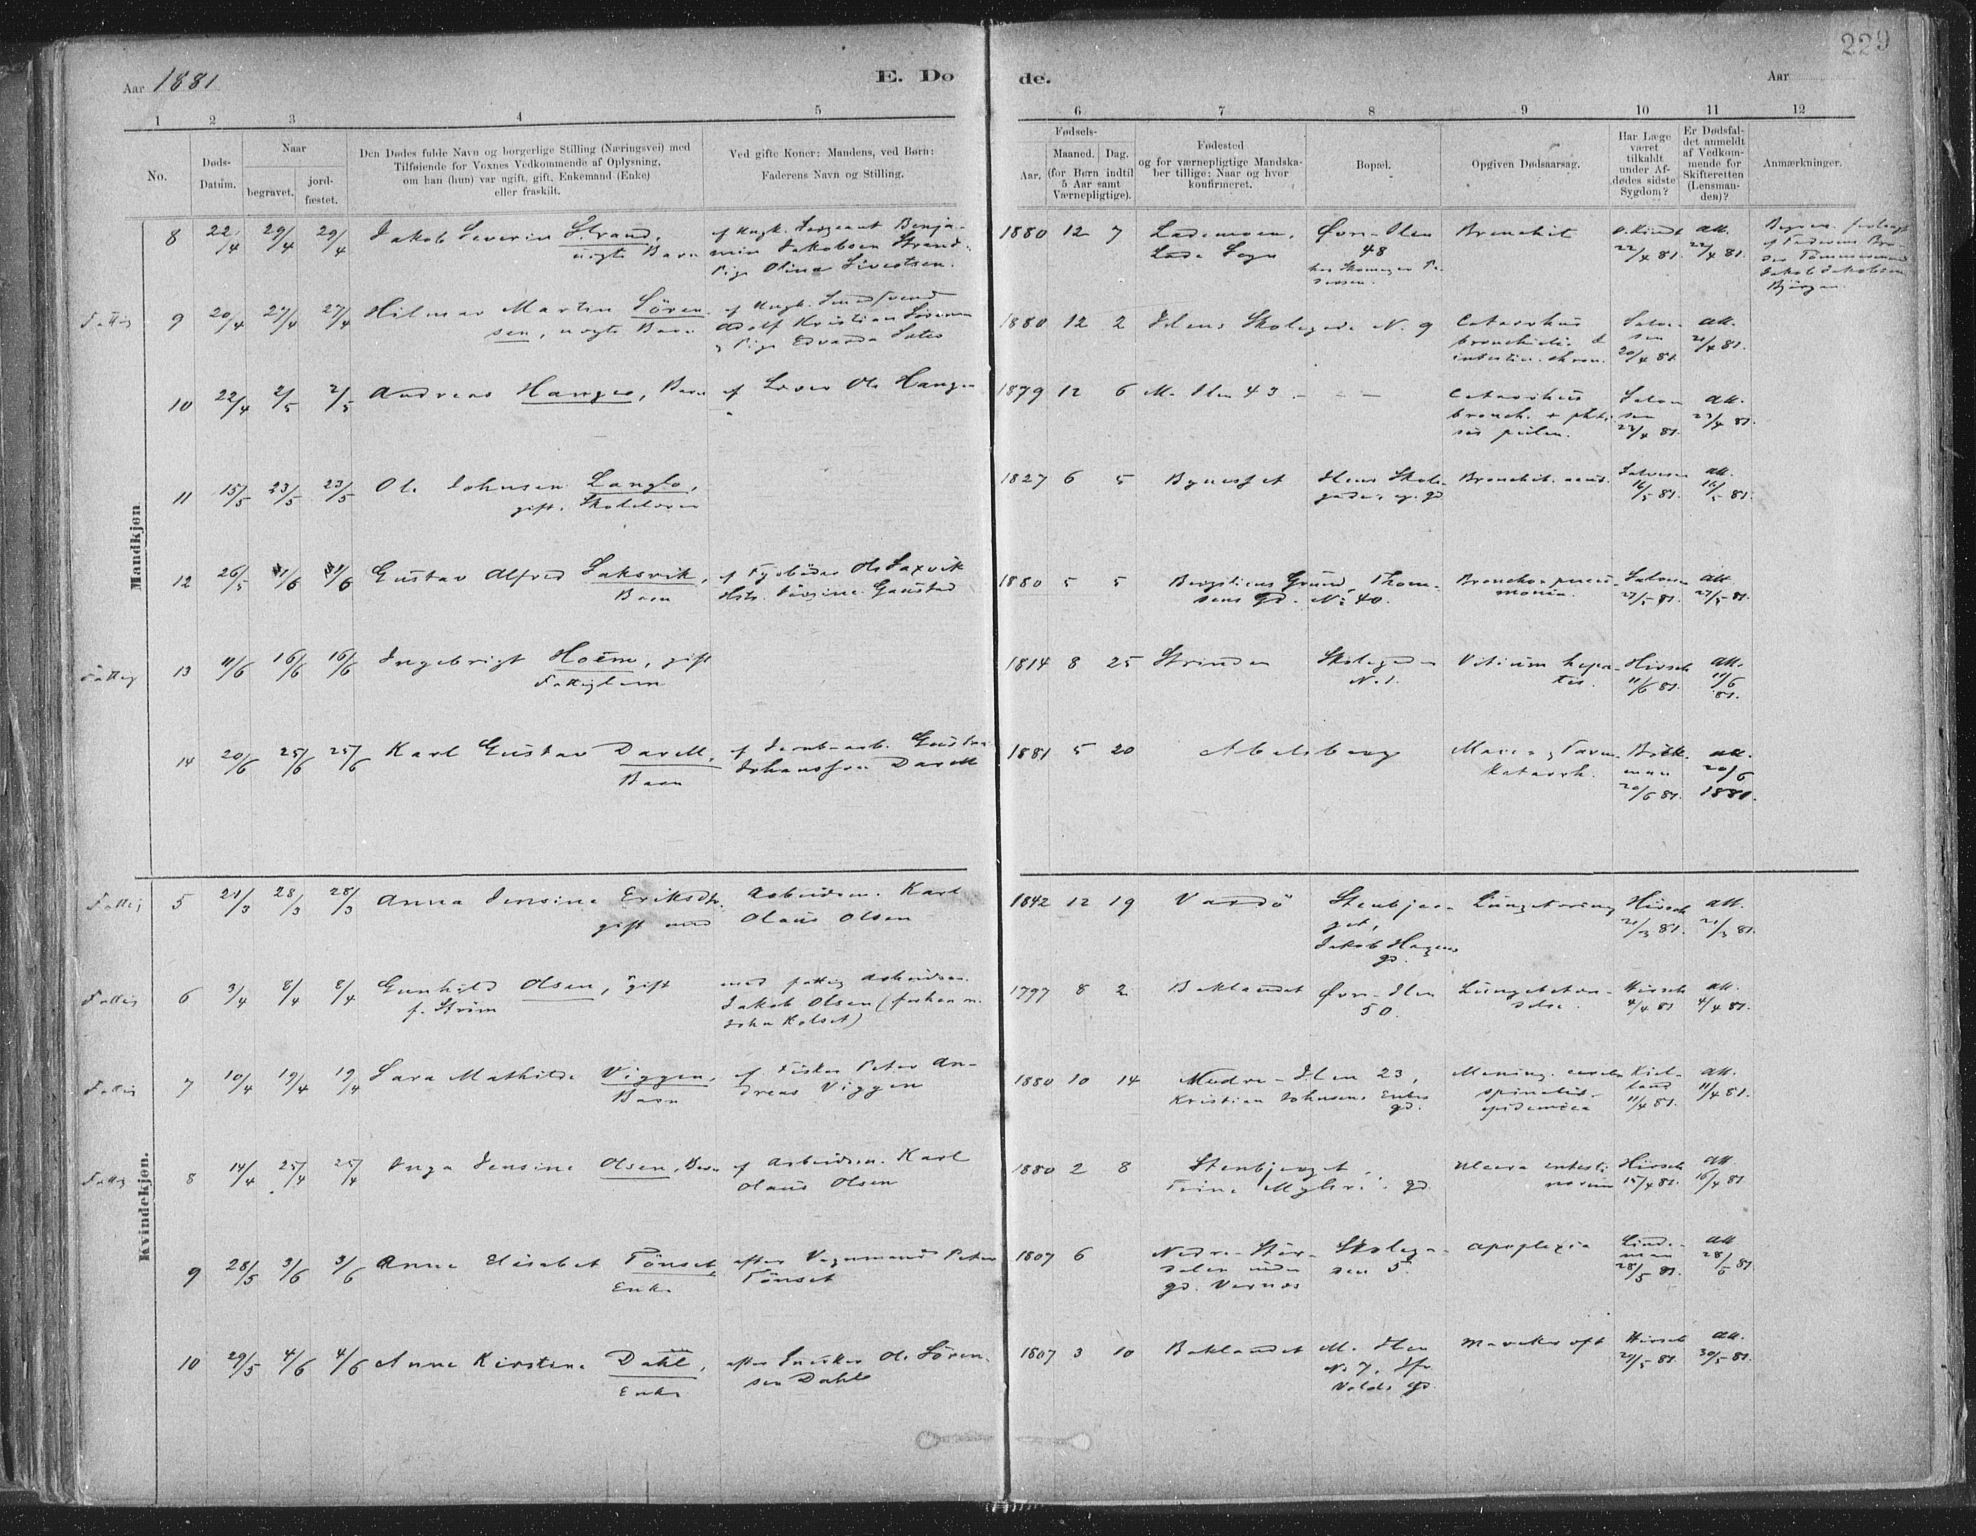 229
Aar 1881
E. Dø
de.
Aar
1 2 3 4 5 6 7 8 9 10 11 12
No.
Døds-
Datum.
Naar
begravet.
jord-
fæstet.
Den Dødes fulde Navn og borgerlige Stilling (Næringsvei) med
Tilføiende for Voxnes Vedkommende af Oplysning,
om han (hun) var ugift, gift, Enkemand (Enke)
eller fraskilt.
Ved gifte Koner: Mandens, ved Børn:
Faderens Navn og Stilling.
Fødsels-
Aar.
Maaned.
Dag.
(for Børn indtil
5 Aar samt
Værnepligtige).
Fødested
og for værnepligtige Mandska-
ber tillige: Naar og hvor
konfirmeret.
Bopæl.
Opgiven Dødsaarsag.
Har Læge
været
tilkaldt
under Af-
dødes sidste
Sygdom?
Er Dødsfal-
det anmeldt
af Vedkom-
mende for
Skifteretten
(Lensman-
den)?
Anmærkninger.
Mandkjøn.
8 22/4 29/4 29/4 Jakob Severin Strand, af Ungk. Sergeant Benja- 1880 12 7 Lademoen, Øvre Ilen Bronchit att.
uægte Barn min Jakobsen Strand Lade Sogn 48 22/4 81. 22/4 81.
Pige Olina Sivertsen.
Fattig 9 20/4 27/4 27/4 Hilmar Martin Sören- af Ungk. Smedsvend 1880 12 2 Ilens Skolegade N. 9 Catarrhus att.
sen, uægte Barn Adolf Kristian Sörensen 20/4 81. 21/4 81.
g Pige Edvarda
10 22/4 2/5 2/5 Andreas Hanges, Barn af Ole Hanges 1879 12 6 N. Ilen 43 - - - Catarrhus att.
bronch. 22/4 81. 23/4 81.
11 15/5 23/5 23/5 Ole Johnsen Langlo, 1827 6 5 Bynesset Ilens Skole- Bronchit. acut. Salvesen att.
gift, Skolelærer 16/5 81. 16/5 81.
12 26/5 1/6 1/6 Gustav Alfred Saksvik, af Fyrböder Ole Saxvik 1880 5 5 Bergstiens Grund, Thom- Broncho-pneu- att.
Barn Hstr. Gaustad sens Gd. No 40. monia. 27/5 81. 27/5 81.
Fattig 13 11/6 16/6 16/6 Ingebrigt Hoëm, gift 1814 8 25 Strinden Skolegaden Vitium hepa- Hirsch att.
Fattiglem N. 1. tis. 11/6 81. 11/6 81.
14 20/6 25/6 25/6 Karl Gustav Darell, af Jernb.arb. Gustav 1881 5 20 Abelsberg Mave- g Tarm- att.
Barn Johansson Darell Katarrh. 20/6 81. 20/6 1881.
Kvindekjøn.
Fattig 5 21/3 28/3 28/3 Anna Jensine Eriksdtr. Arbeidsm. Karl 1842 12 19 Vardö Stenbjer- Lungetæring Hirsch att.
gift med Olaus Olsen get, 21/3 81. 21/3 81.
Jakob Hagens
gd.
Fattig 6 3/4 8/4 8/4 Gunhild Olsen, gift med fattig Arbeidsm. 1797 8 2 Baklandet Øvre Ilen Lungebetæn- Hirsch att.
f. Ström Jakob Olsen (forhen m. 50. delse. 4/4 81 4/4 81.
John Kolset)
Fattig 7 10/4 19/4 19/4 Sara Mathilde Viggen, af Fisker Peter An- 1880 10 14 Nedre-Ilen 23, Mening. cerebro Kiel- att.
Barn dreas Viggen Kristian Johnsens Enkes spinalis land 11/4 81.
gd. epidemica 11/4 81.
Fattig 8 14/4 25/4 25/4 Inga Jensine Olsen, Barn af Arbeidsm. Karl 1880 2 8 Stenbjerget, Ulcera intesti- Hirsch att.
Olaus Olsen gd. norum 15/4 81. 16/4 81
9 28/5 3/6 3/6 Anne Elisabet Tönset, efter Vognmand Peter 1807 6 Nedre-Stjør- Skolega- apoplexia Linde- att
Enke Tönset dalen under den 5. man 28/5 81
gd. Værnes 28/5 81.
10 29/5 4/6 4/6 Anne Kirstine Dahl, efter Snedker Ole Sören- 1807 3 10 Baklandet N. Ilen Mavekræft Hirsch att.
Enke sen Dahl N. 7, 29/5 81. 30/5 81.
Volds gd.